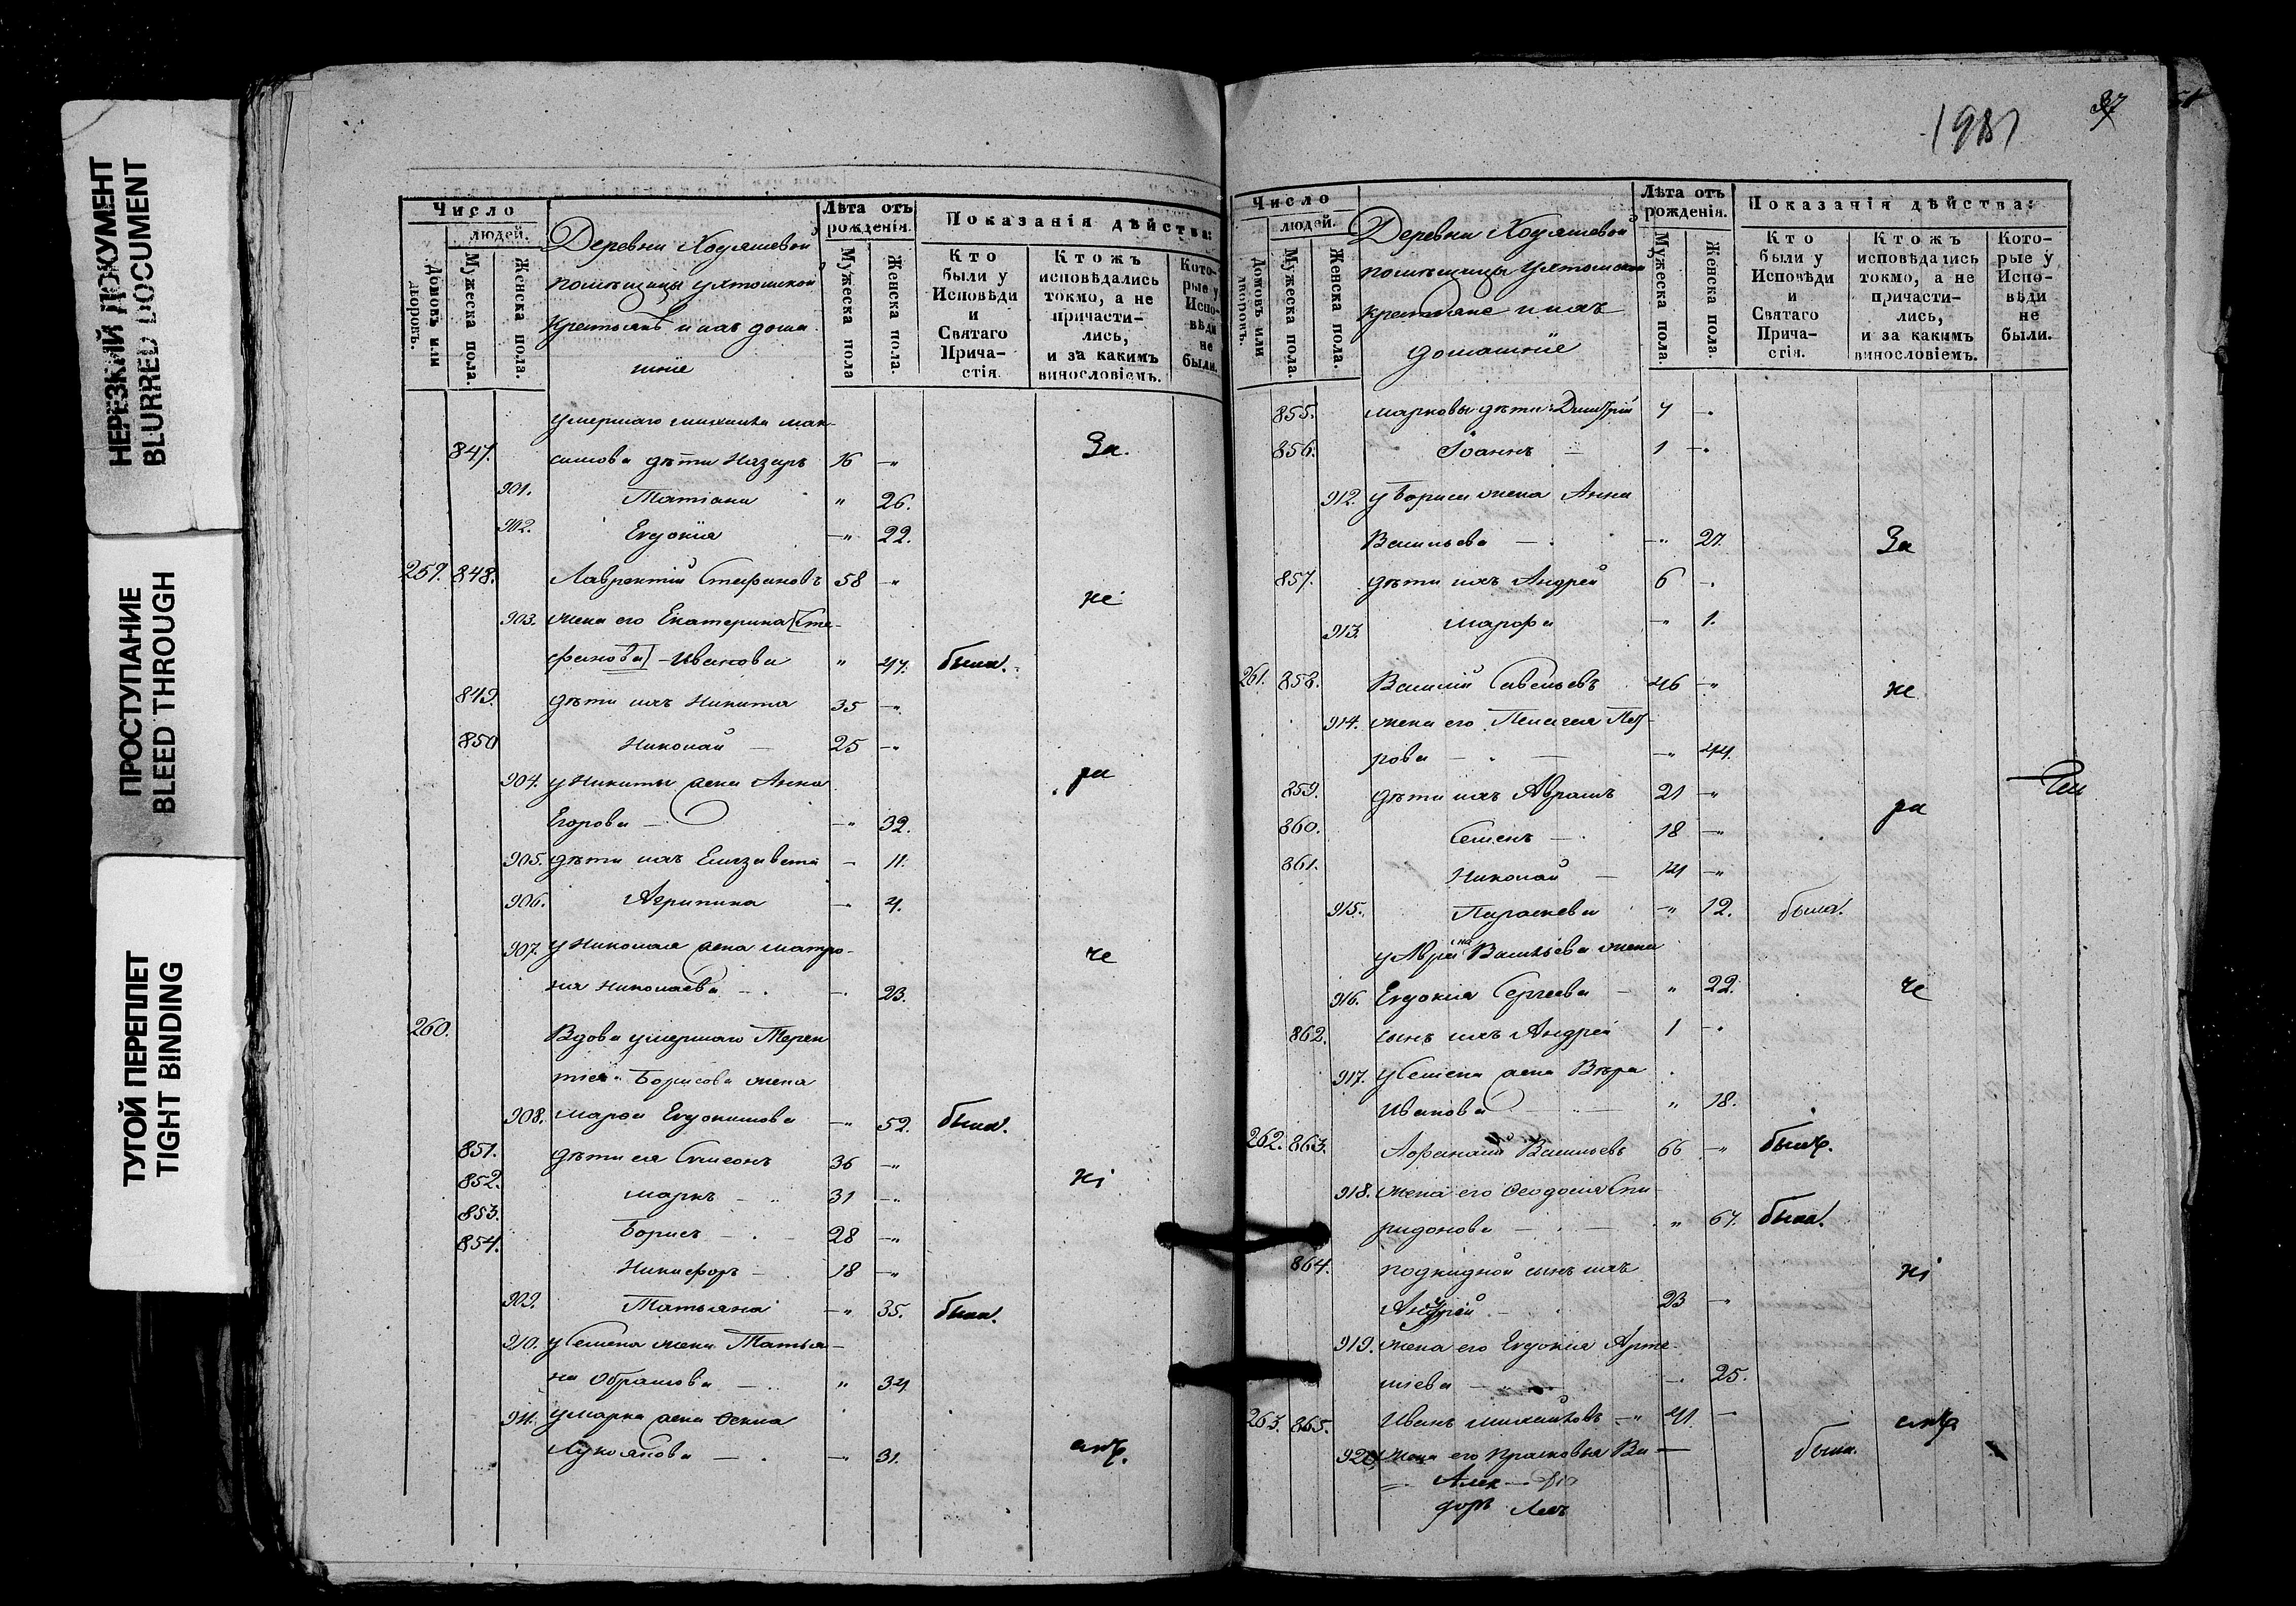 НЕРЕЗКИЙ ДОКУМЕНТ
BLURRED DOCUMENT
ПРОСТУПАНИЕ
BLEED THROUGH
ТУГОЙ ПЕРЕПЛЕТ
TIGHT BINDING
Число
людей.
Домовъ или дворовъ.
Мужеска пола.
Женска пола.
Деревни Ходяшевой
помѣщицы
крестьянъ и ихъ дома
шніе
Лѣта отъ рожденія.
Мужеска пола
Женска пола.
Показанія дѣйства:
Кто были у Исповѣди и Святаго Прича-стія.
Ктожъ исповѣдались токмо, а не причасти-лись, и за какимъ винословіемъ.
Кото-рые у Испо-вѣди не были.
умершаго Михаила Мак-
847. симова дѣти Назаръ 16 -" За.
901. Татіана " 26.
902. Евдокія -" 22.
259. 848. Лаврентій Стефановъ 58 -"
не
903. жена его Екатерина [Сте-
фанова] - Иванова " 47. была.
849. дѣти ихъ Никита 35 -"
850 Николай - 25 -"
904. у Никиты жена Анна ра
Егорова - -" 32.
905. дѣти ихъ Елизавета - 11.
906. Агрипина - 4.
907. у Николая жена Матро- че
на Николаева - - 23.
260. Вдова умершаго Терен
тія Борисова жена
908. Марѳа Евдокимова -" 52. была.
851. дѣти ея Симеонъ 36 -"
852. Маркъ - 31 -"
853. Борисъ - 28 -"
854. Никифоръ - 18 -"
909. Татьяна -" 35. была.
910. у Семена жена Татья-
на Абрамова - " 34
911. у Марка жена
Лукоянова - -" 31.
1987
37
Число
людей.
Домовъ или дворовъ.
Мужеска пола.
Женска пола.
Деревни Ходяшевой
помѣщицы
крестьяне и ихъ
домашніе
Лѣта отъ рожденія.
Мужеска пола.
Женска пола.
Показанія дѣйства:
Кто были у Исповѣди и Святаго Прича-стія.
Ктожъ исповѣдались токмо, а не причасти-лись, и за какимъ винословіемъ.
Кото-рые у Испо-вѣди не были.
855. Марковы дѣти: Димитрій 4 -"
856. Іоаннъ - 1 -"
912. у Бориса жена Анна
Васильева - -" 27. За
857. дѣти ихъ Андрей 6 -
913. Марфа -" 1.
261. 858. Василій Савельевъ 46 -" не
914. жена его Пелагея Пет-
рова - -" 44.
859. дѣти ихъ Абрамъ 21 -" ра
860. Семенъ - 18 -"
861. Николай - 14 -"
915. Параскева -" 12. была.
у Абрама Васильева жена
916. Евдокия Сергеева - " 22. че
862. сынъ ихъ Андрей 1 -"
917. у Семена жена Вѣра
Иванова - " 18.
262. 863. Афанасій Васильевъ 66 -" былъ.
918. жена его Феодосия Спи-
ридонова - " 67. была.
864. подкидной сынъ ихъ
Андрей - 23 -"
919. жена его Евдокия Арте
міева - - 25.
263. 865. Иванъ Михайловъ -" 41 -
920. жена его Прасковья Ва - была.